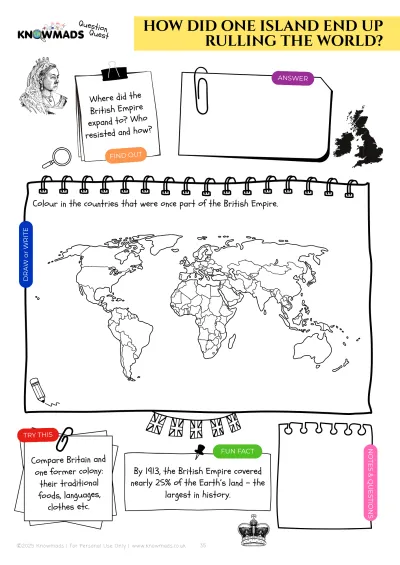 KNOWMADS
Question
Quest
HOW DID ONE ISLAND END UP
RULLING THE WORLD?
Where did the
British Empire
expand to? Who
resisted and how?
FIND OUT
ANSWER
Colour in the countries that were once part of the British Empire.
DRAW or WRITE
TRY THIS
Compare Britain and
one former colony:
their traditional
foods, languages,
clothes etc.
FUN FACT
By 1913, the British Empire covered
nearly 25% of the Earth's land – the
largest in history.
NOTES & QUESTIONS
©2025 Knowmads | For Personal Use Only | www.knowmads.co.uk